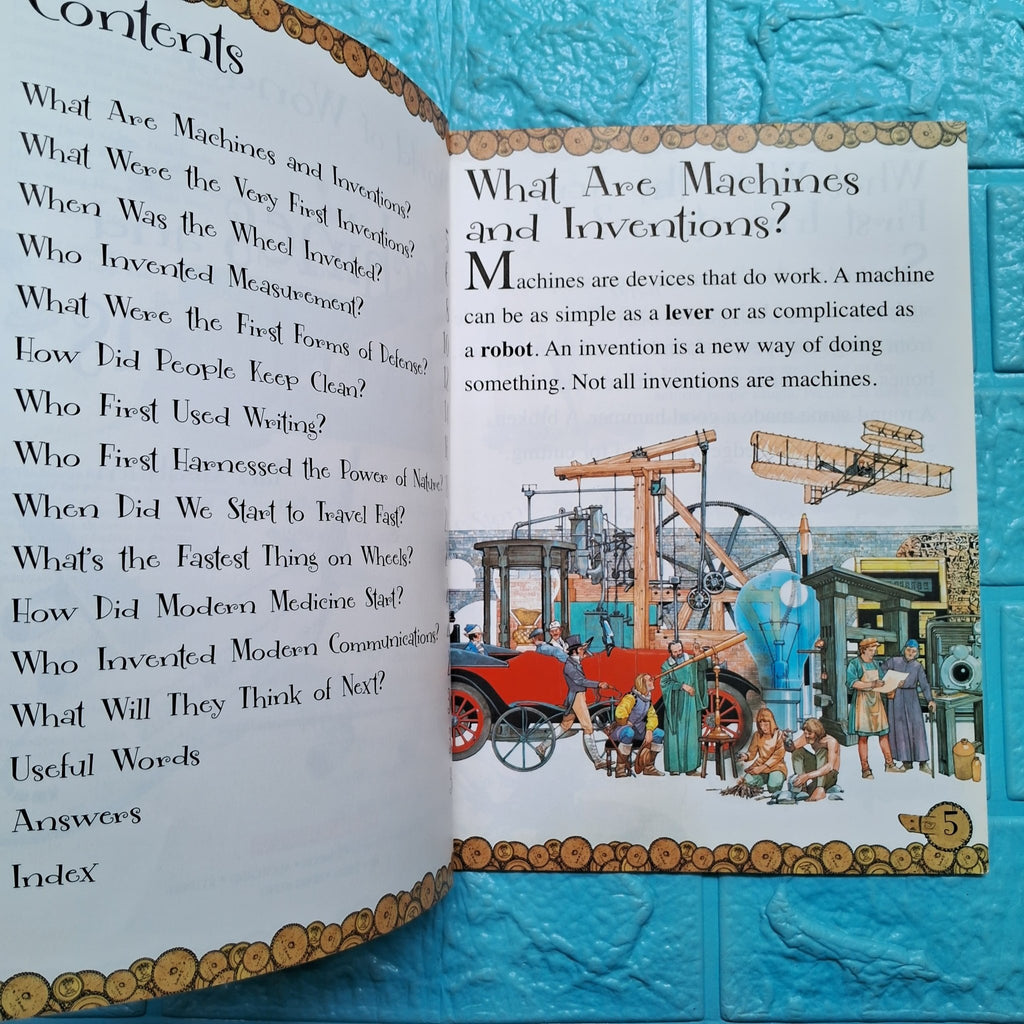 Contents
What Are Machines and Inventions?
What Were the Very First Inventions?
When Was the Wheel Invented?
Who Invented Measurement?
What Were the First Forms of Defense?
How Did People Keep Clean?
Who First Used Writing?
Who First Harnessed the Power of Nature?
When Did We Start to Travel Fast?
What's the Fastest Thing on Wheels?
How Did Modern Medicine Start?
Who Invented Modern Communications?
What Will They Think of Next?
Useful Words
Answers
Index
What Are Machines
and Inventions?
Machines are devices that do work. A machine
can be as simple as a lever or as complicated as
a robot. An invention is a new way of doing
something. Not all inventions are machines.
5